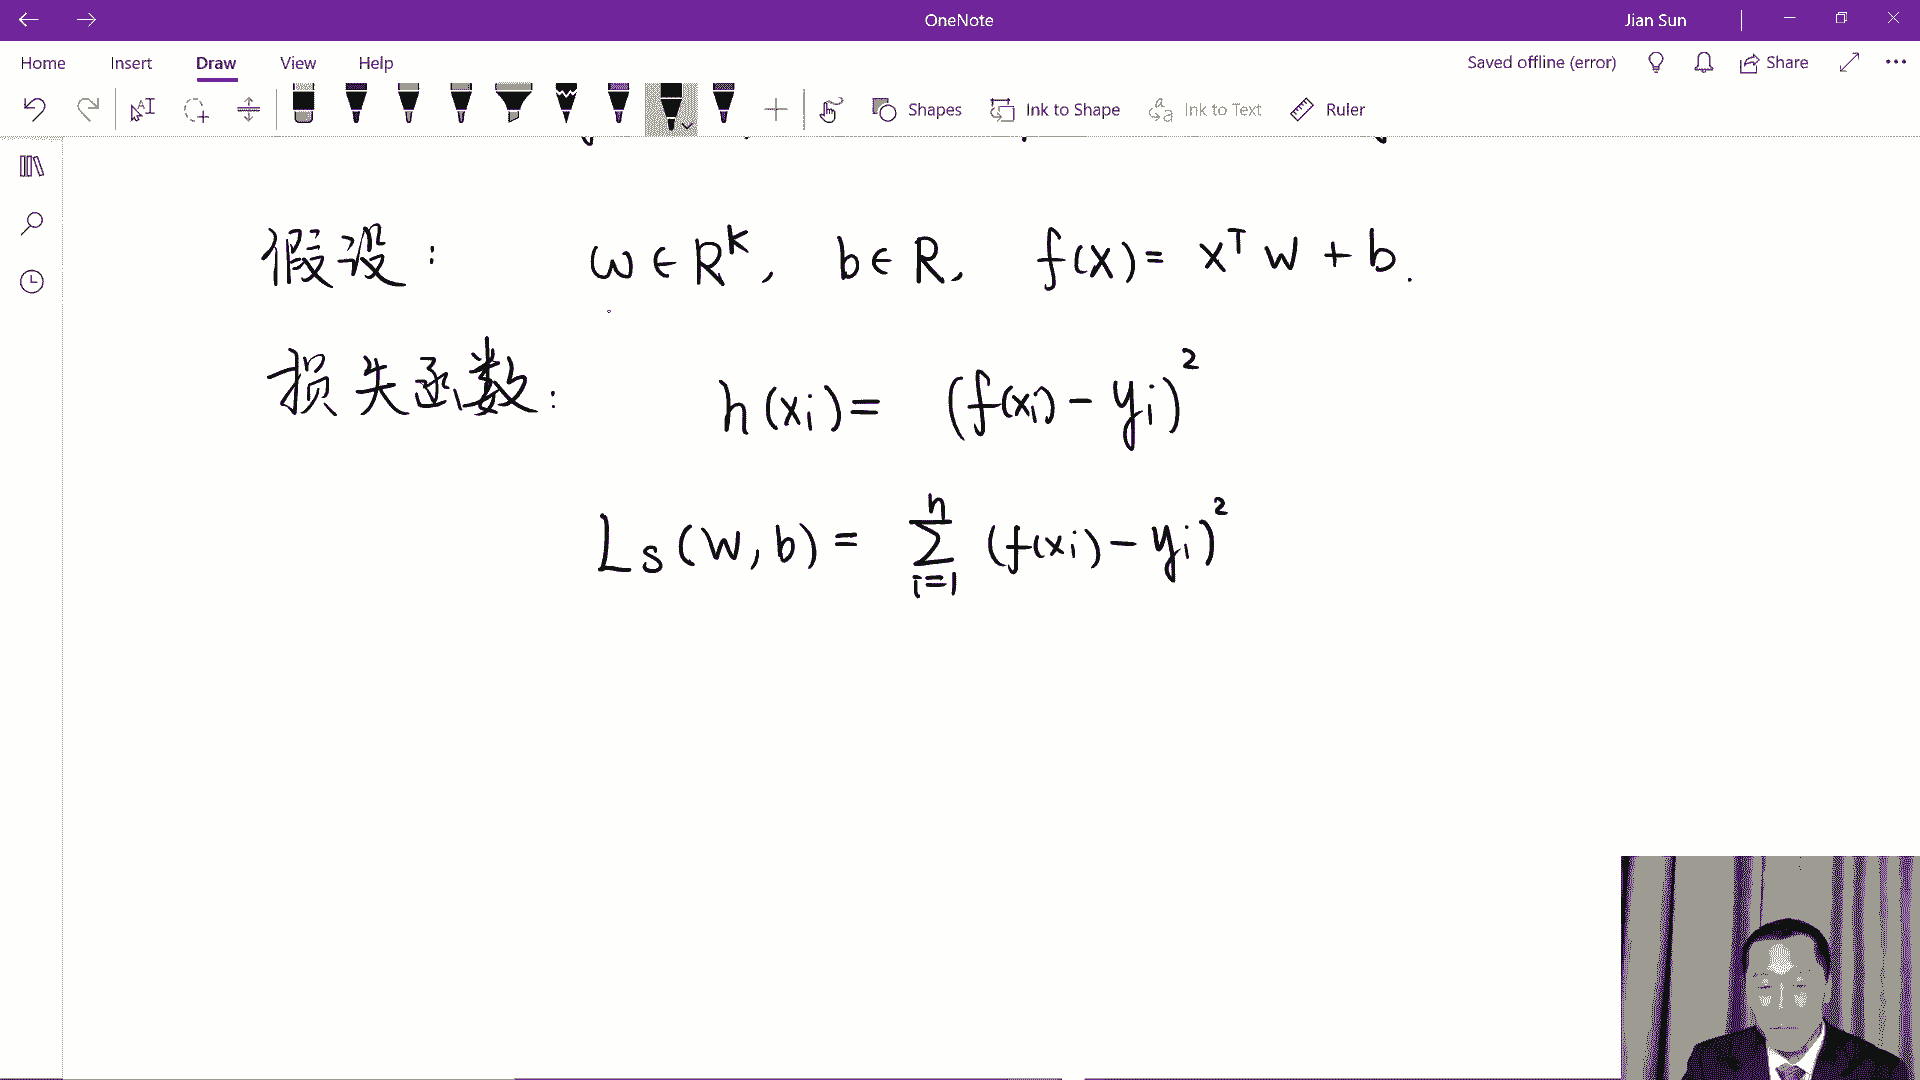 OneNote
Jian Sun
Home Insert Draw View Help
Saved offline (error)
Share
Shapes
Ink to Shape
Ink to Text
Ruler
假设: w ∈ R^K, b ∈ R, f(x) = x^T w + b.
损失函数: h(xi) = (f(xi) - yi)^2
L_S(w, b) = ∑_{i=1}^{n} (f(xi) - yi)^2